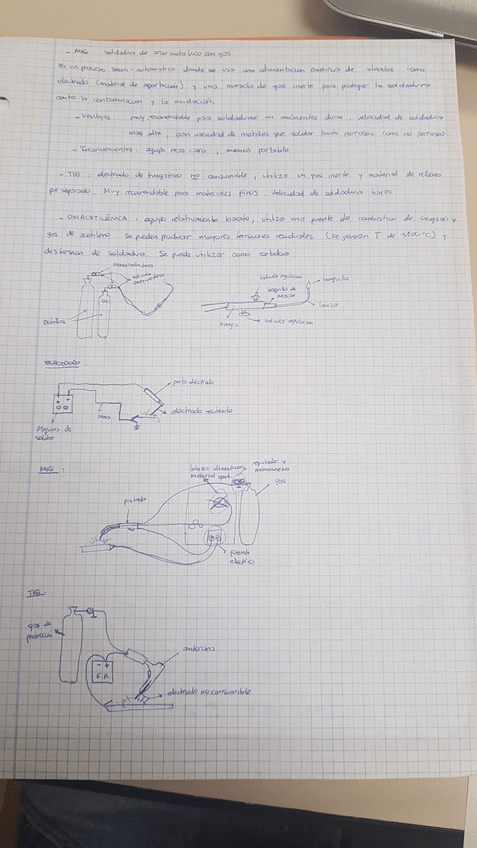 - MIG: soldadura de arco metálico con gas.
Es un proceso semi-automático donde se usa una alimentación continua de alambre como
electrodo (material de aportación) y una mezcla de gas inerte para proteger la soldadura
ante la contaminación y la oxidación.
- Ventajas: muy recomendable para soldaduras en ambientes duros, velocidad de soldadura
más alta, gran variedad de metales que soldar tanto ferrosos como no ferrosos.
- Inconvenientes: equipo más caro, menos portable
- TIG: electrodo de tungsteno no consumible, utiliza un gas inerte, y material de relleno
por separado. Muy recomendable para materiales finos. Velocidad de soldadura baja.
- OXIACETILÉNICA: equipo relativamente barato, utiliza una fuente de combustión de oxígeno y
gas de acetileno. Se pueden producir mayores tensiones residuales (Tª de 3100ºC) y
distorsión de soldadura. Se puede utilizar como cortadora.
válvula
boquilla
botellas
lanza
mango
válvula
ELECTRODO:
porta electrodo
electrodo recubierto
masa
Máquina de
soldar
MIG:
regulador y
manómetro
gas
pistola
fuente
eléctrica
TIG:
gas de
protección
antorcha
F.A.
electrodo no consumible